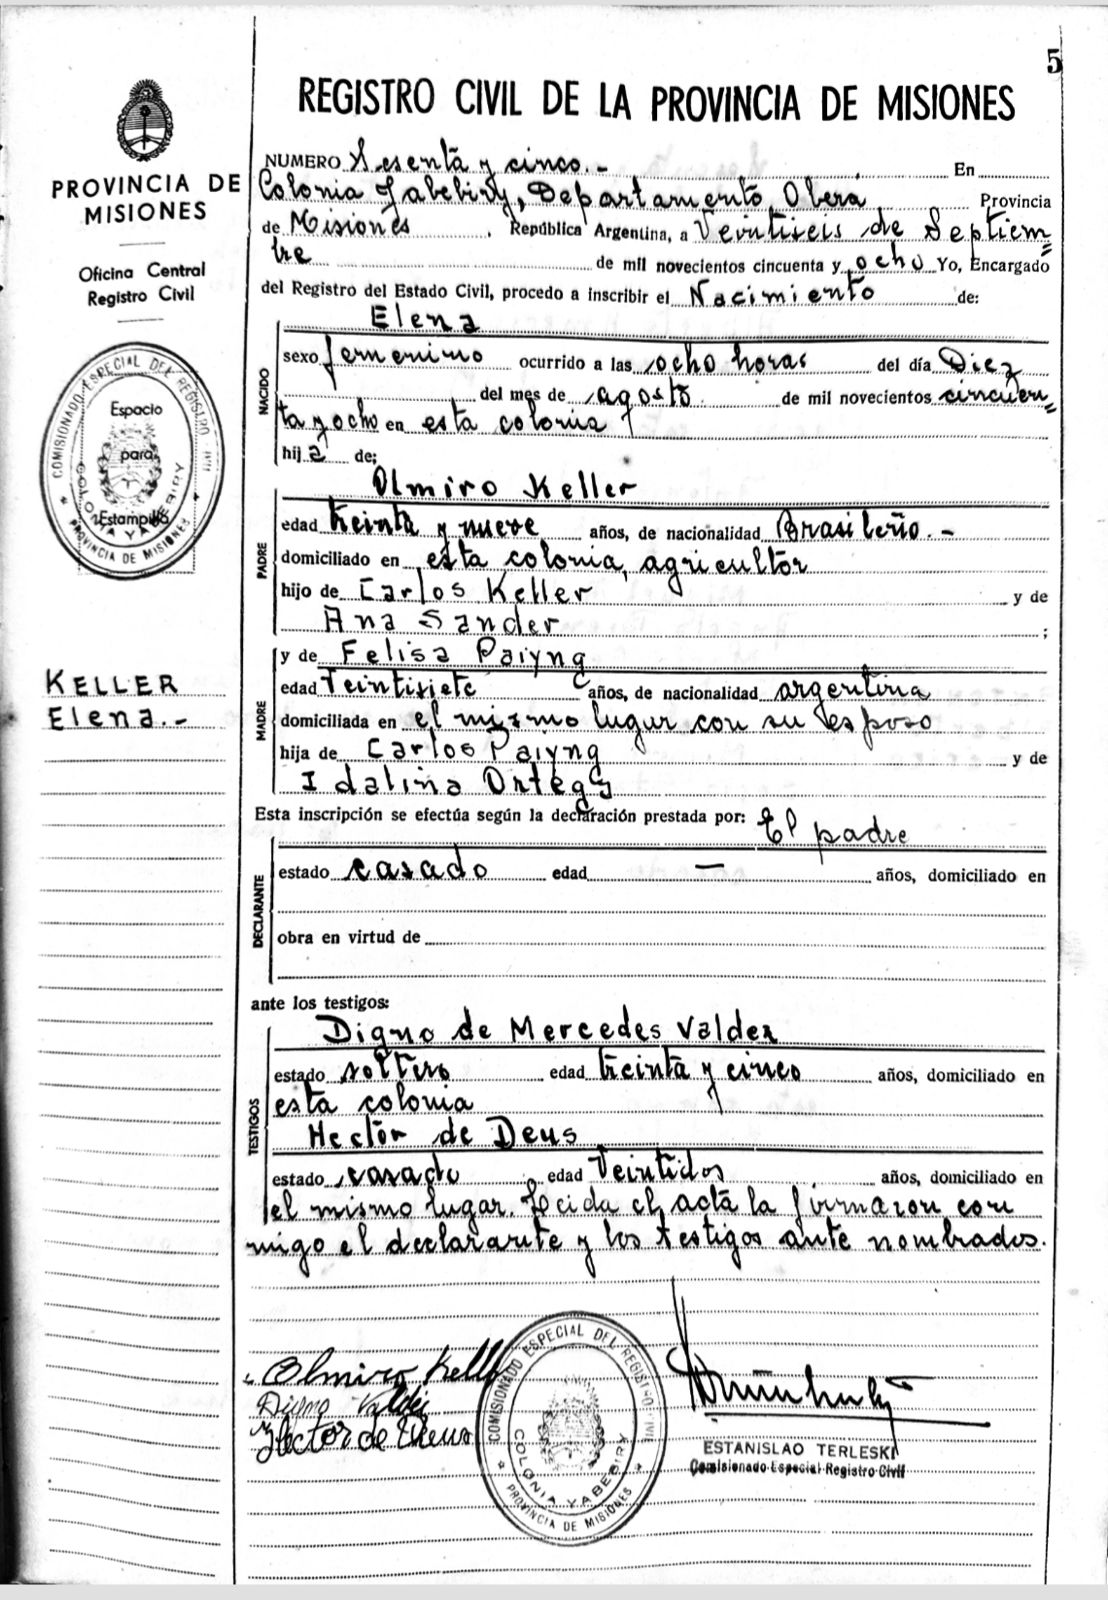 5
REGISTRO CIVIL DE LA PROVINCIA DE MISIONES
PROVINCIA DE
MISIONES
Oficina Central
Registro Civil
COMISIONADO ESPECIAL DEL REGISTRO CIVIL
COLONIA YABEBIRY
PROVINCIA DE MISIONES
Espacio
para
Estampilla
KELLER
Elena.-
NUMERO Sesenta y cinco.- En
Colonia Yabebiry, Departamento Oberá Provincia
de Misiones. República Argentina, a Veintiseis de Septiem=
bre de mil novecientos cincuenta y ocho Yo, Encargado
del Registro del Estado Civil, procedo a inscribir el Nacimiento de:
NACIDO
Elena
sexo femenino ocurrido a las ocho horas del día Diez
del mes de agosto de mil novecientos cincuen=
ta y ocho en esta colonia
hija de;
PADRE
Olmiro Keller
edad treinta y nueve años, de nacionalidad Brasileño.-
domiciliado en esta colonia, agricultor
hijo de Carlos Keller y de
Ana Sander ;
MADRE
y de Felisa Paiyng
edad Veintisiete años, de nacionalidad argentina
domiciliada en el mismo lugar con su esposo
hija de Carlos Paiyng y de
Idalina Ortega
Esta inscripción se efectúa según la declaración prestada por: El padre
DECLARANTE
estado casado edad — años, domiciliado en
obra en virtud de
ante los testigos:
TESTIGOS
Digno de Mercedes Valdez
estado soltero edad treinta y cinco años, domiciliado en
esta colonia
Hector de Deus
estado casado edad Veintidos años, domiciliado en
el mismo lugar. Leida el acta la firmaron con
migo el declarante y los testigos ante nombrados.
Olmiro Kell
Digno Valdez
Hector de Deus
COMISIONADO ESPECIAL DEL REGISTRO CIVIL
COLONIA YABEBIRY
PROVINCIA DE MISIONES
ESTANISLAO TERLESKI
Comisionado Especial Registro Civil